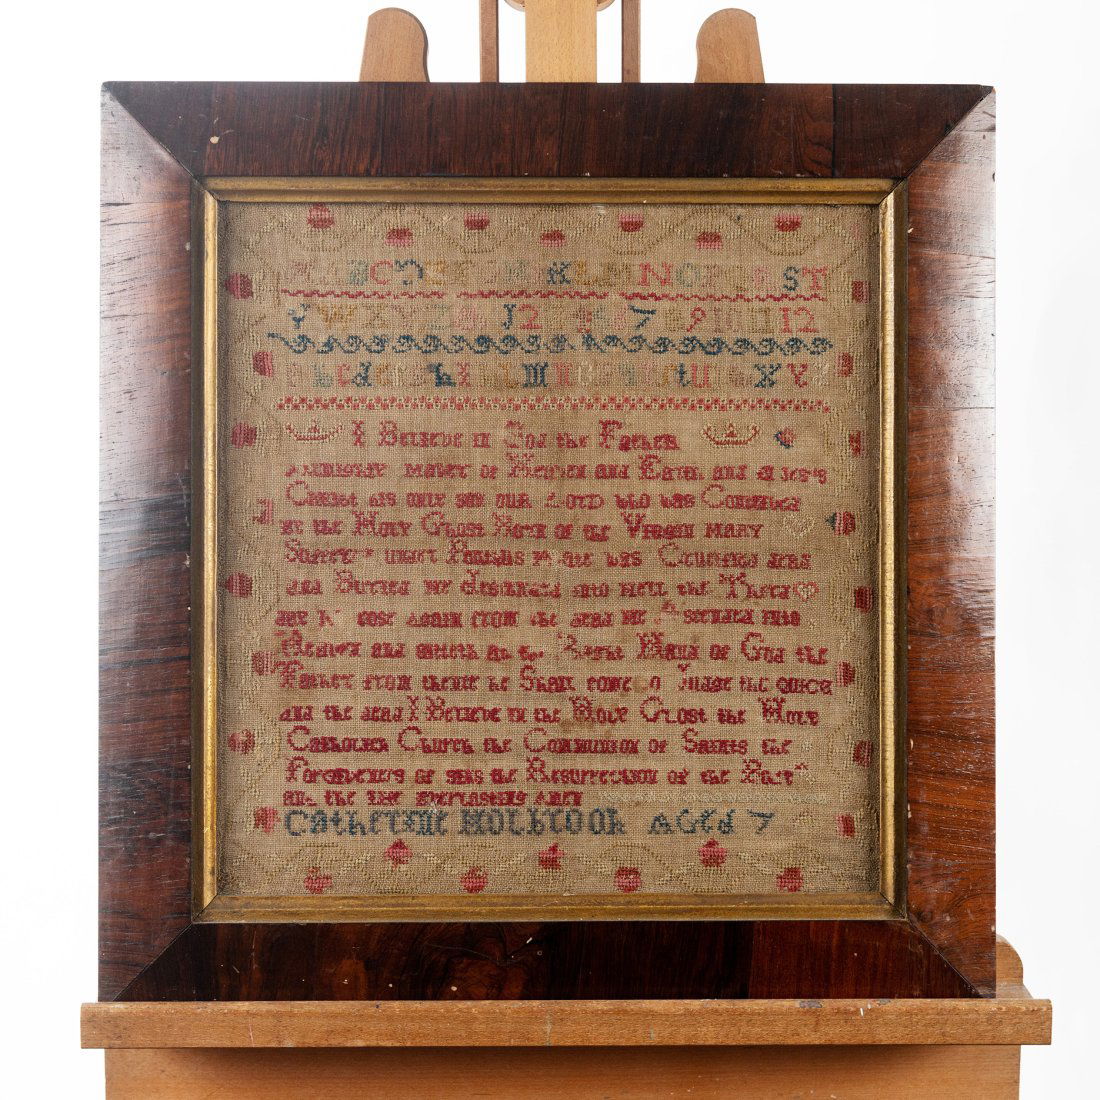 A B C D E F G H K L M N O P Q R S T
V W X Y Z J 2 3 4 5 6 7 8 9 10 11 12
a b c d e f h k l M n o p q r s t u X Y z
I Believe in God the Father
Almighty Maker of Heaven and Earth and
Christ his only son our LOrD who was
by the HOLY Ghost Born of the Virgin MARY
under was Crucified dead
and Buried He descended into Hell the Third
day He rose again from the dead He Ascended into
Heaven and sitteth at the Right Hand of God the
Father from thence he Shall come to Judge the quick
and the dead I Believe in the HOLY Ghost the HOLY
Catholick Church the Communion of Saints the
Forgiveness of sins the Resurrection of the
and the life everlasting Amen
Catherine HOLbrOOk AGed 7